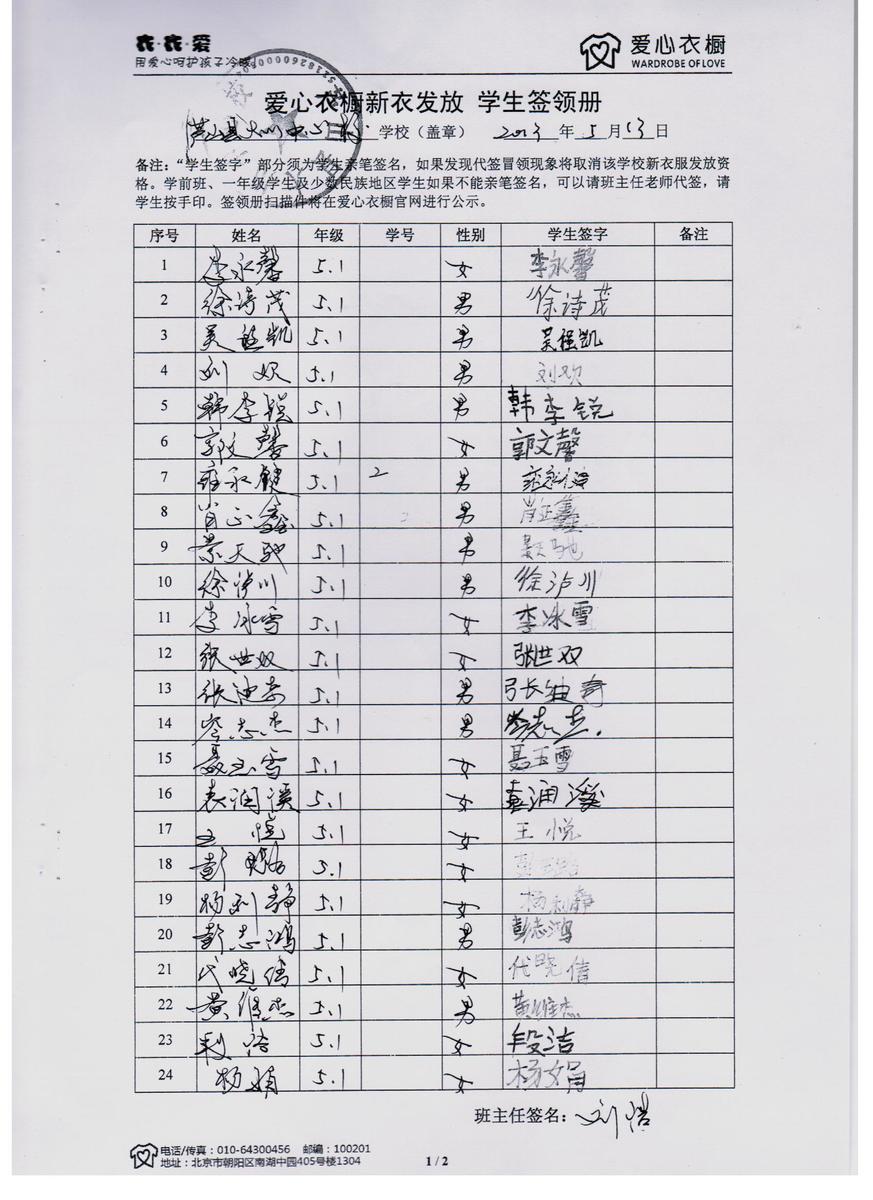 衣·衣·爱
用爱心呵护孩子冷暖!
爱心衣橱
WARDROBE OF LOVE
爱心衣橱新衣发放 学生签领册
学校(盖章) 2013 年 5 月 13 日
备注:“学生签字”部分须为学生亲笔签名,如果发现代签冒领现象将取消该学校新衣服发放资
格。学前班、一年级学生及少数民族地区学生如果不能亲笔签名,可以请班主任老师代签,请
学生按手印。签领册扫描件将在爱心衣橱官网进行公示。
序号 姓名 年级 学号 性别 学生签字 备注
1 李永馨 5.1 女 李永馨
2 徐诗茂 5.1 男 徐诗茂
3 吴强凯 5.1 男 吴强凯
4 刘欢 5.1 男 刘欢
5 韩李锐 5.1 男 韩李锐
6 郭文馨 5.1 女 郭文馨
7 5.1 2 男
8 肖正鑫 5.1 男 肖正鑫
9 景天驰 5.1 男 景天驰
10 徐泸川 5.1 男 徐泸川
11 李冰雪 5.1 女 李冰雪
12 张世双 5.1 女 张世双
13 张迪奇 5.1 男 张迪奇
14 岑志杰 5.1 男 岑志杰.
15 聂玉雪 5.1 女 聂玉雪
16 袁润溪 5.1 女 袁润溪
17 王悦 5.1 女 王悦
18 5.1 女
19 杨利静 5.1 女 杨利静
20 彭志鸿 5.1 男 彭志鸿
21 代晓倩 5.1 女 代晓倩
22 黄维杰 5.1 男 黄维杰
23 段洁 5.1 女 段洁
24 杨娟 5.1 女 杨娟
班主任签名: 刘浩
电话/传真:010-64300456 邮编:100201
地址:北京市朝阳区南湖中园405号楼1304
1 / 2